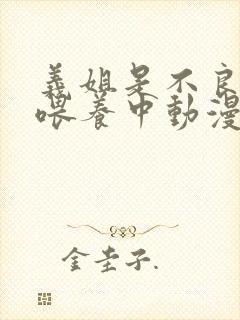 義姐是不良
喂養中動漫
金圭子.